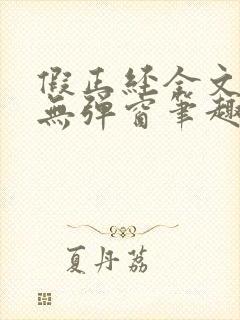 假正经全文
無彈窗筆趣
夏丹荔